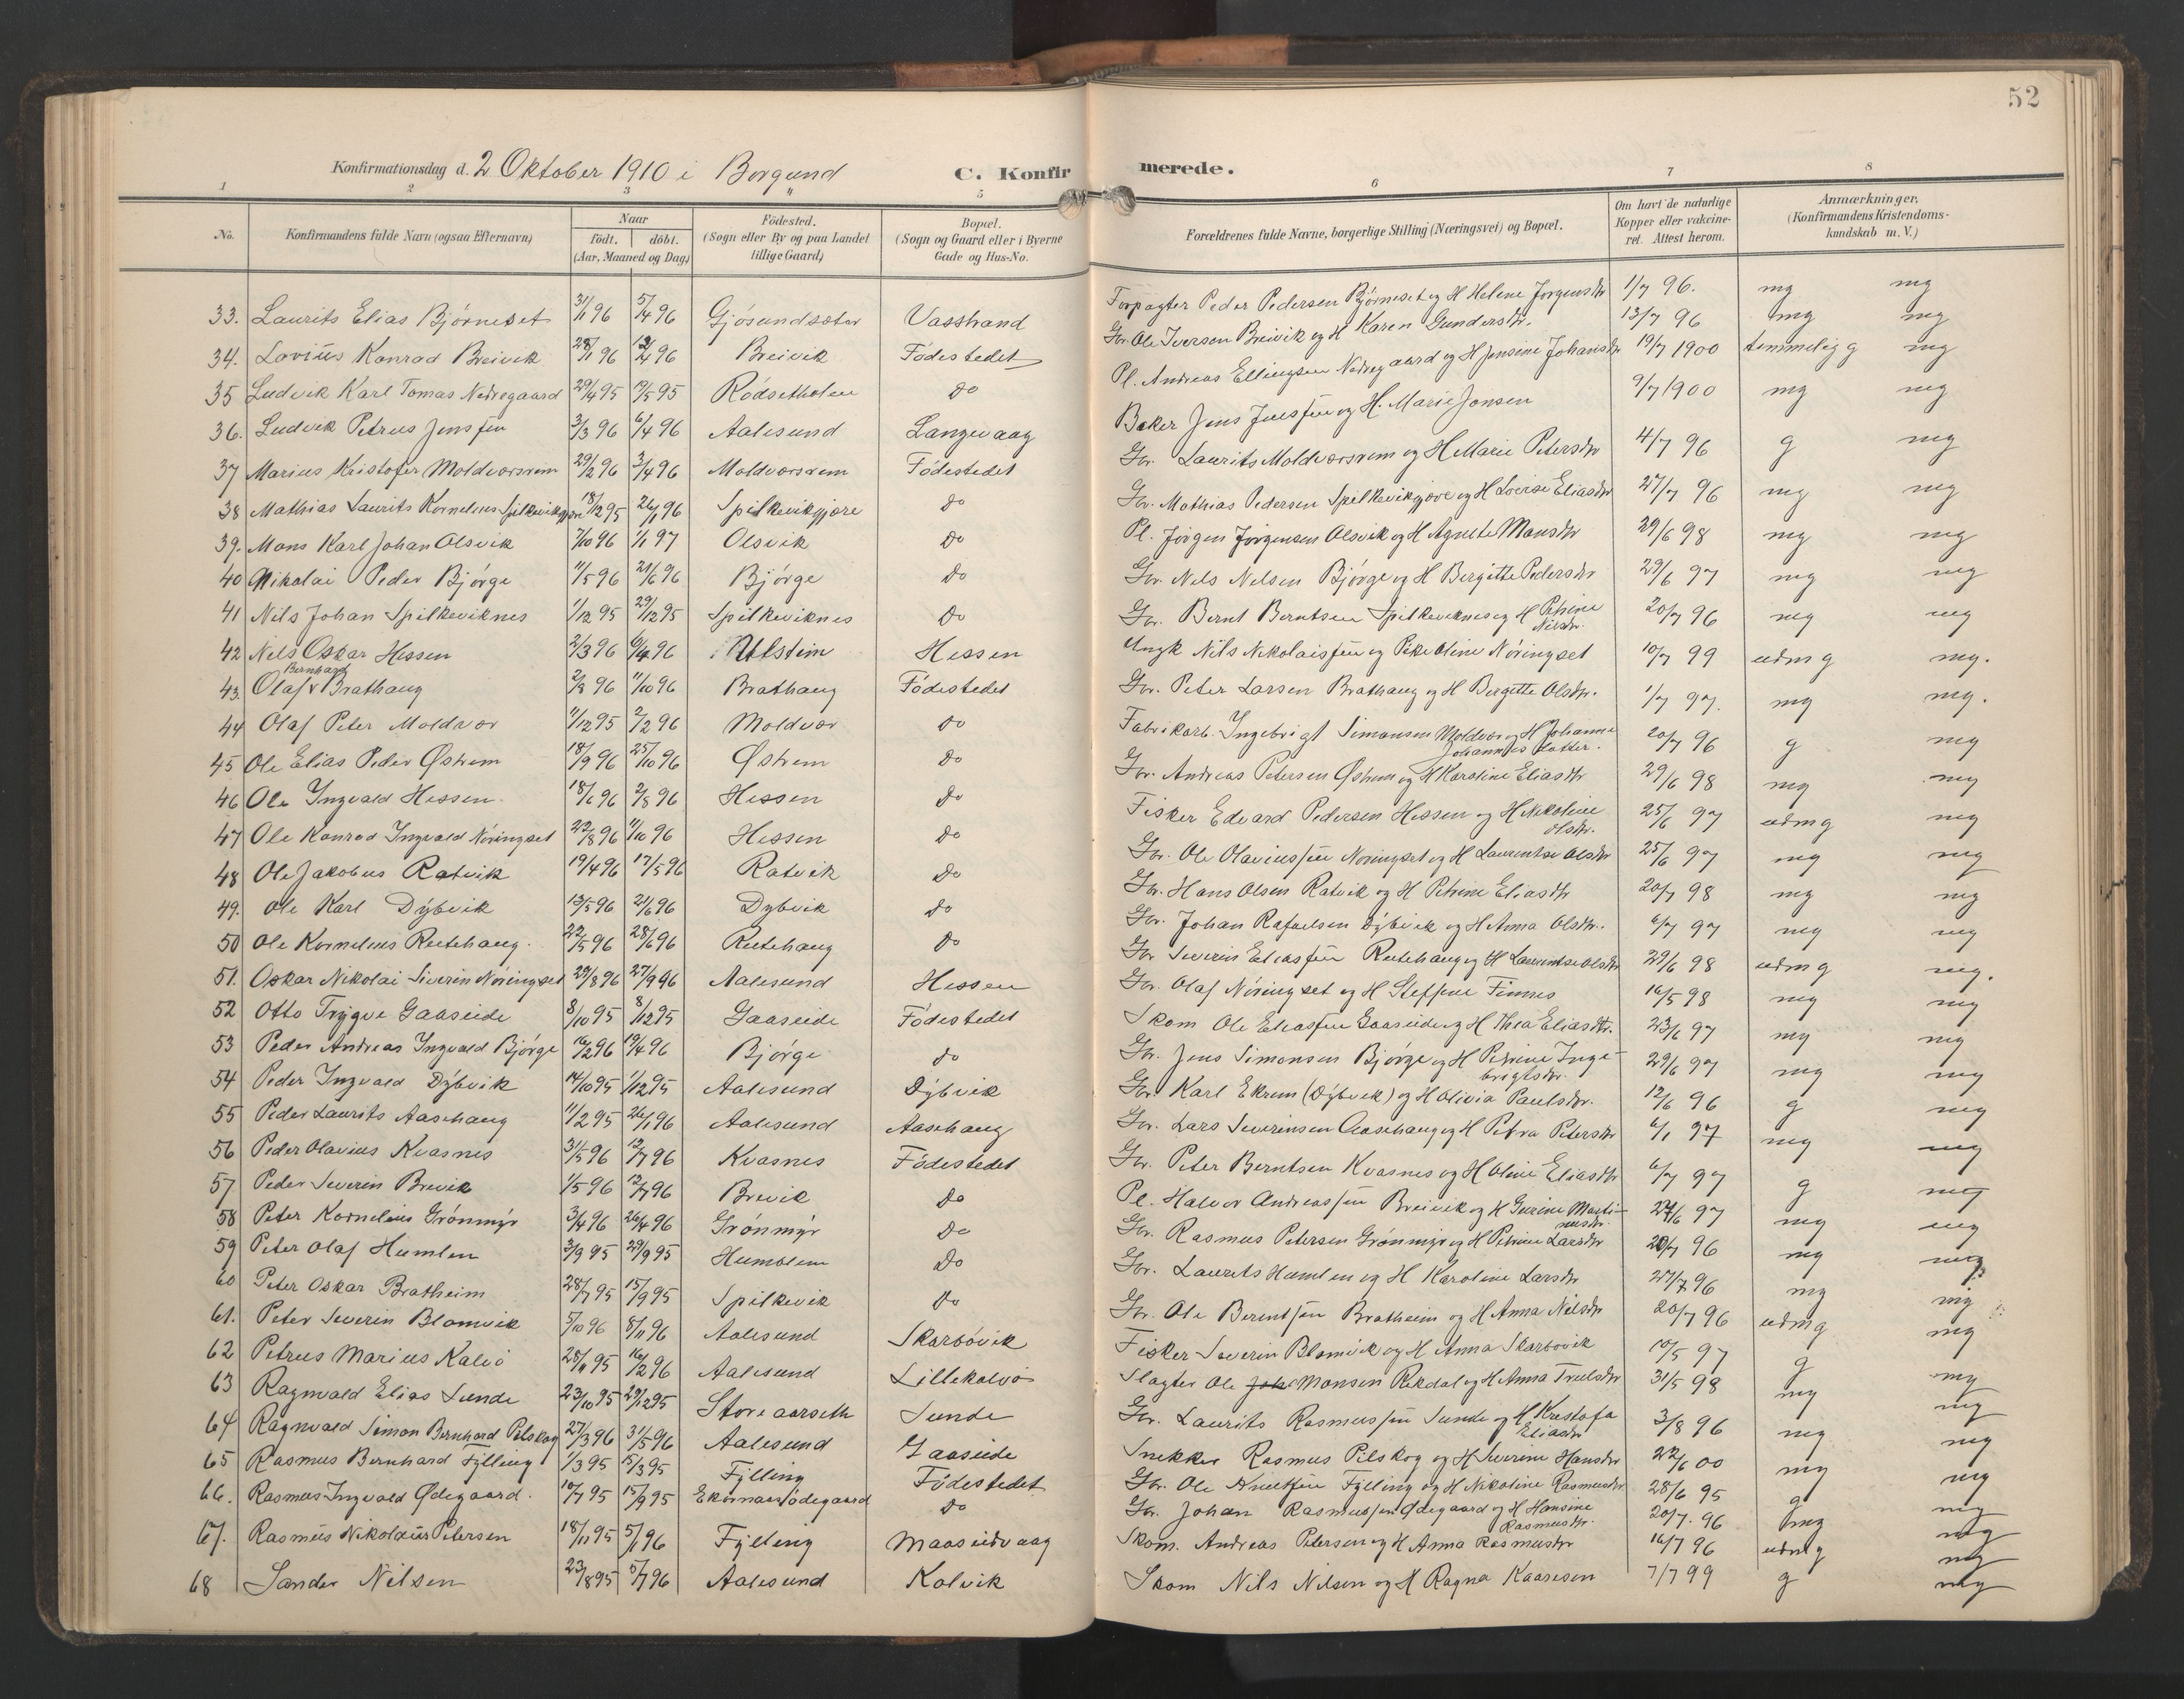 52
Konfirmationsdag d. 2 Oktober 1910 i Borgund C. Konfirmerede.
1 2 3 " 5 6 7 8
No. Konfirmandens fulde Navn (ogsaa Efternavn) Naar födt. döbt. (Aar, Maaned og Dag) Födested. (Sogn eller By og paa Landet tillige Gaard) Bopæl. (Sogn og Gaard eller i Byerne Gade og Hus-No. Forældrenes fulde Navne, borgerlige Stilling (Næringsvei) og Bopæl. Om havt de naturlige Kopper eller vakcineret. Attest herom. Anmærkninger. (Konfirmandens Kristendomskundskab m. V.)
33. Laurits Elias Björneset 31/1 96 5/4 96 Gjösundsæter Vasstrand Forpagter Peder Pedersen Björneset og H Helene Jorgensdtr 1/7 96. mg mg
34. Lovius Konrad Breivik 28/1 96 12/4 96 Breivik Födestedet Gbr. Ole Iversen Breivik og H Karen Gundersdtr. 13/7 96 mg mg
35 Ludvik Karl Tomas Nedregaard 29/4 95 19/5 95 Rödsetholen do Pl. Andreas Ellingsen Nedregaard og H Jensine Johansdtr 19/7 1900 temmelig g mg
36. Ludvik Petrus Jenssen 3/3 96 6/4 96 Aalesund Langevaag Baker Jens Jenssen og H. Marie Jonsen 9/7 1900 mg mg
37 Marius Kristofer Moldværsrem 29/2 96 3/4 96 Moldværsrem Födestedet Gbr. Laurits Moldværsrem og H Marie Petersdtr 4/7 96 g mg
38 Mathias Laurits Kornelius Spilkevikgjære 18/12 95 26/1 96 Spilkevikgjære do Gbr. Mathias Pedersen Spilkevikgjære og H Lovise Eliasdtr 27/7 96 mg mg
39. Mons Karl Johan Olsvik 7/10 96 1/1 97 Olsvik do Pl. Jörgen Jörgensen Olsvik og H Agnete Monsdtr 29/6 98 mg mg
40 Nikolai Peder Björge 11/5 96 21/6 96 Björge do Gbr. Nels Nelsen Björge og H Bergitte Pedersdtr 29/6 97 mg mg
41 Nils Johan Spilkeviknes 1/12 95 29/12 95 Spilkeviknes do Gbr. Bernt Berntsen Spilkeviknes og H Petrine Nilsdtr. 20/7 96 mg mg
42 Nels Oskar Hessen 2/3 96 6/4 96 Ulstein Hessen Ungk Nils Nikolaissen og Pike Oline Nöringset 10/7 99 udmg mg.
43. Olaf Bernhard Brathaug 2/8 96 11/10 96 Brathaug Födestedet Gbr. Peter Larsen Brathaug og H Bergitte Olsdtr. 1/7 97. mg mg.
44 Olaf Peter Moldvær 11/12 95 2/2 96 Moldvær do Fabrikarb. Ingebrigt Simonsen Moldvær og H Johanne Johannes datter. 20/7 96 g mg
45 Ole Elias Peder Östrem 18/9 96 25/10 96 Östrem do Gbr. Andreas Petersen Östrem og H Karoline Eliasdtr 29/6 98 mg mg
46 Ole Ingvald Hessen. 18/6 96 2/8 96 Hessen do Fisker Edvard Pedersen Hessen og H Nikoline Olsdtr. 25/6 97 udmg mg
47 Ole Konrad Ingvald Nöringset 22/8 96 11/10 96 Hessen do Gbr. Ole Olaviussen Nöringset og H Laurentse Olsdtr 25/6 97 mg mg
48 Ole Jakobus Ratvik 19/4 96 17/5 96 Ratvik do Gbr. Hans Olsen Ratvik og H Petrine Eliasdtr 20/7 98 mg mg
49. Ole Karl Dybvik 13/5 96 21/6 96 Dybvik do Gbr. Johan Rafaelsen Dybvik og H Anna Olsdtr. 6/7 97 mg mg
50 Ole Kornelius Rutehaug. 22/5 96 28/6 96 Rutehaug do Gbr Severin Eliassen Rutehaug og H Laurentse Olsdtr 29/6 98 udmg mg.
51. Oskar Nikolai Siverin Nöringset 29/8 96 27/9 96 Aalesund Hessen Gbr. Olaf Nöringset og H Steffine Finnes 16/5 98 mg mg
52 Otto Trygve Gaaseide 8/10 95 8/12 95 Gaaseide Födestedet Skom Ole Eliassen Gaaseide og H Thea Eliasdtr. 23/6 97 mg mg
53 Peder Andreas Ingvald Björge 16/2 96 19/4 96 Björge do Gbr. Jens Simonsen Björge og H Petrine Ingebrigtsdtr. 29/6 97 mg mg
54 Peder Ingvald Dybvik 14/10 95 1/12 95 Aalesund Dybvik Gbr. Karl Ekrem (Dybvik) og H Olivia Paulsdtr. 12/6 96 g mg
55 Peder Laurits Aasehaug 11/2 95 26/1 96 Aalesund Aasehaug Gbr. Lars Severinsen Aasehaug og H Petra Petersdtr 6/1 97 mg mg
56 Peder Olavius Kvasnes 31/5 96 12/7 96 Kvasnes Födestedet Gbr. Peter Berntsen Kvasnes og H Oline Eliasdtr 6/7 97 g mg
57 Peder Severin Brevik 1/5 96 12/7 96 Brevik do Pl. Halvor Andreassen Breivik og H Gurine Martinusdtr. 24/6 97 mg mg
58 Peter Kornelius Grönmyr 3/4 96 26/4 96 Grönmyr do Gbr. Rasmus Petersen Grönmyr og H Petrine Larsdtr 20/7 96 mg mg
59 Peter Olaf Humlen 3/9 95 29/9 95 Humblen do Gbr. Laurits Humlen og H Karoline Larsdtr 27/7 96 mg mg
60 Peter Oskar Bratheim 28/7 95 15/9 95 Spilkevik do Gbr. Ole Berentsen Bratheim og H Anna Nilsdtr 20/7 96 udmg mg
61. Peter Severin Blomvik 5/10 96 8/11 96 Aalesund Skarbövik Fisker Severin Blomvik og H Anna Skarbövik 10/5 97 g mg
62 Petrus Marius Kalvö 28/11 95 16/2 96 Aalesund Lillekalvö Slagter Ole Monsen Rekdal og H Anna Trulsdtr 31/5 98 mg mg
63 Ragnvald Elias Sunde 23/10 95 29/12 95 Store aarseth Sunde Gbr. Laurits Rasmussen Sunde og H Kristofa Eliasdtr 3/8 96 mg mg
64 Ragnvald Simon Bernhard Pilskog 27/3 96 31/5 96 Aalesund Gaaseide Snekker Rasmus Pilskog og H Severine Hansdtr 22/6 00 mg mg
65 Rasmus Bernhard Fylling 1/3 95 15/3 95 Fylling Födestedet Gbr. Ole Knutsen Fylling og H Nikoline Rasmusdtr 28/6 95 g mg
66. Rasmus Ingvald Ödegaard. 10/7 95 15/9 95 Ekornaasödegaard do Gbr. Johan Rasmussen Ödegaard og H Hansine Rasmusdtr. 20/7. 96 mg mg
67. Rasmus Nikolaus Petersen 18/11 95 5/1 96 Fylling Maaseidvaag Skom. Andreas Petersen og H Anna Rasmusdtr 16/7 96 udmg mg
68 Sander Nilsen 23/8 95 5/7 96 Aalesund Kolvik Skom Nils Nilsen og H Ragna Kaaresen 7/7 99 g mg